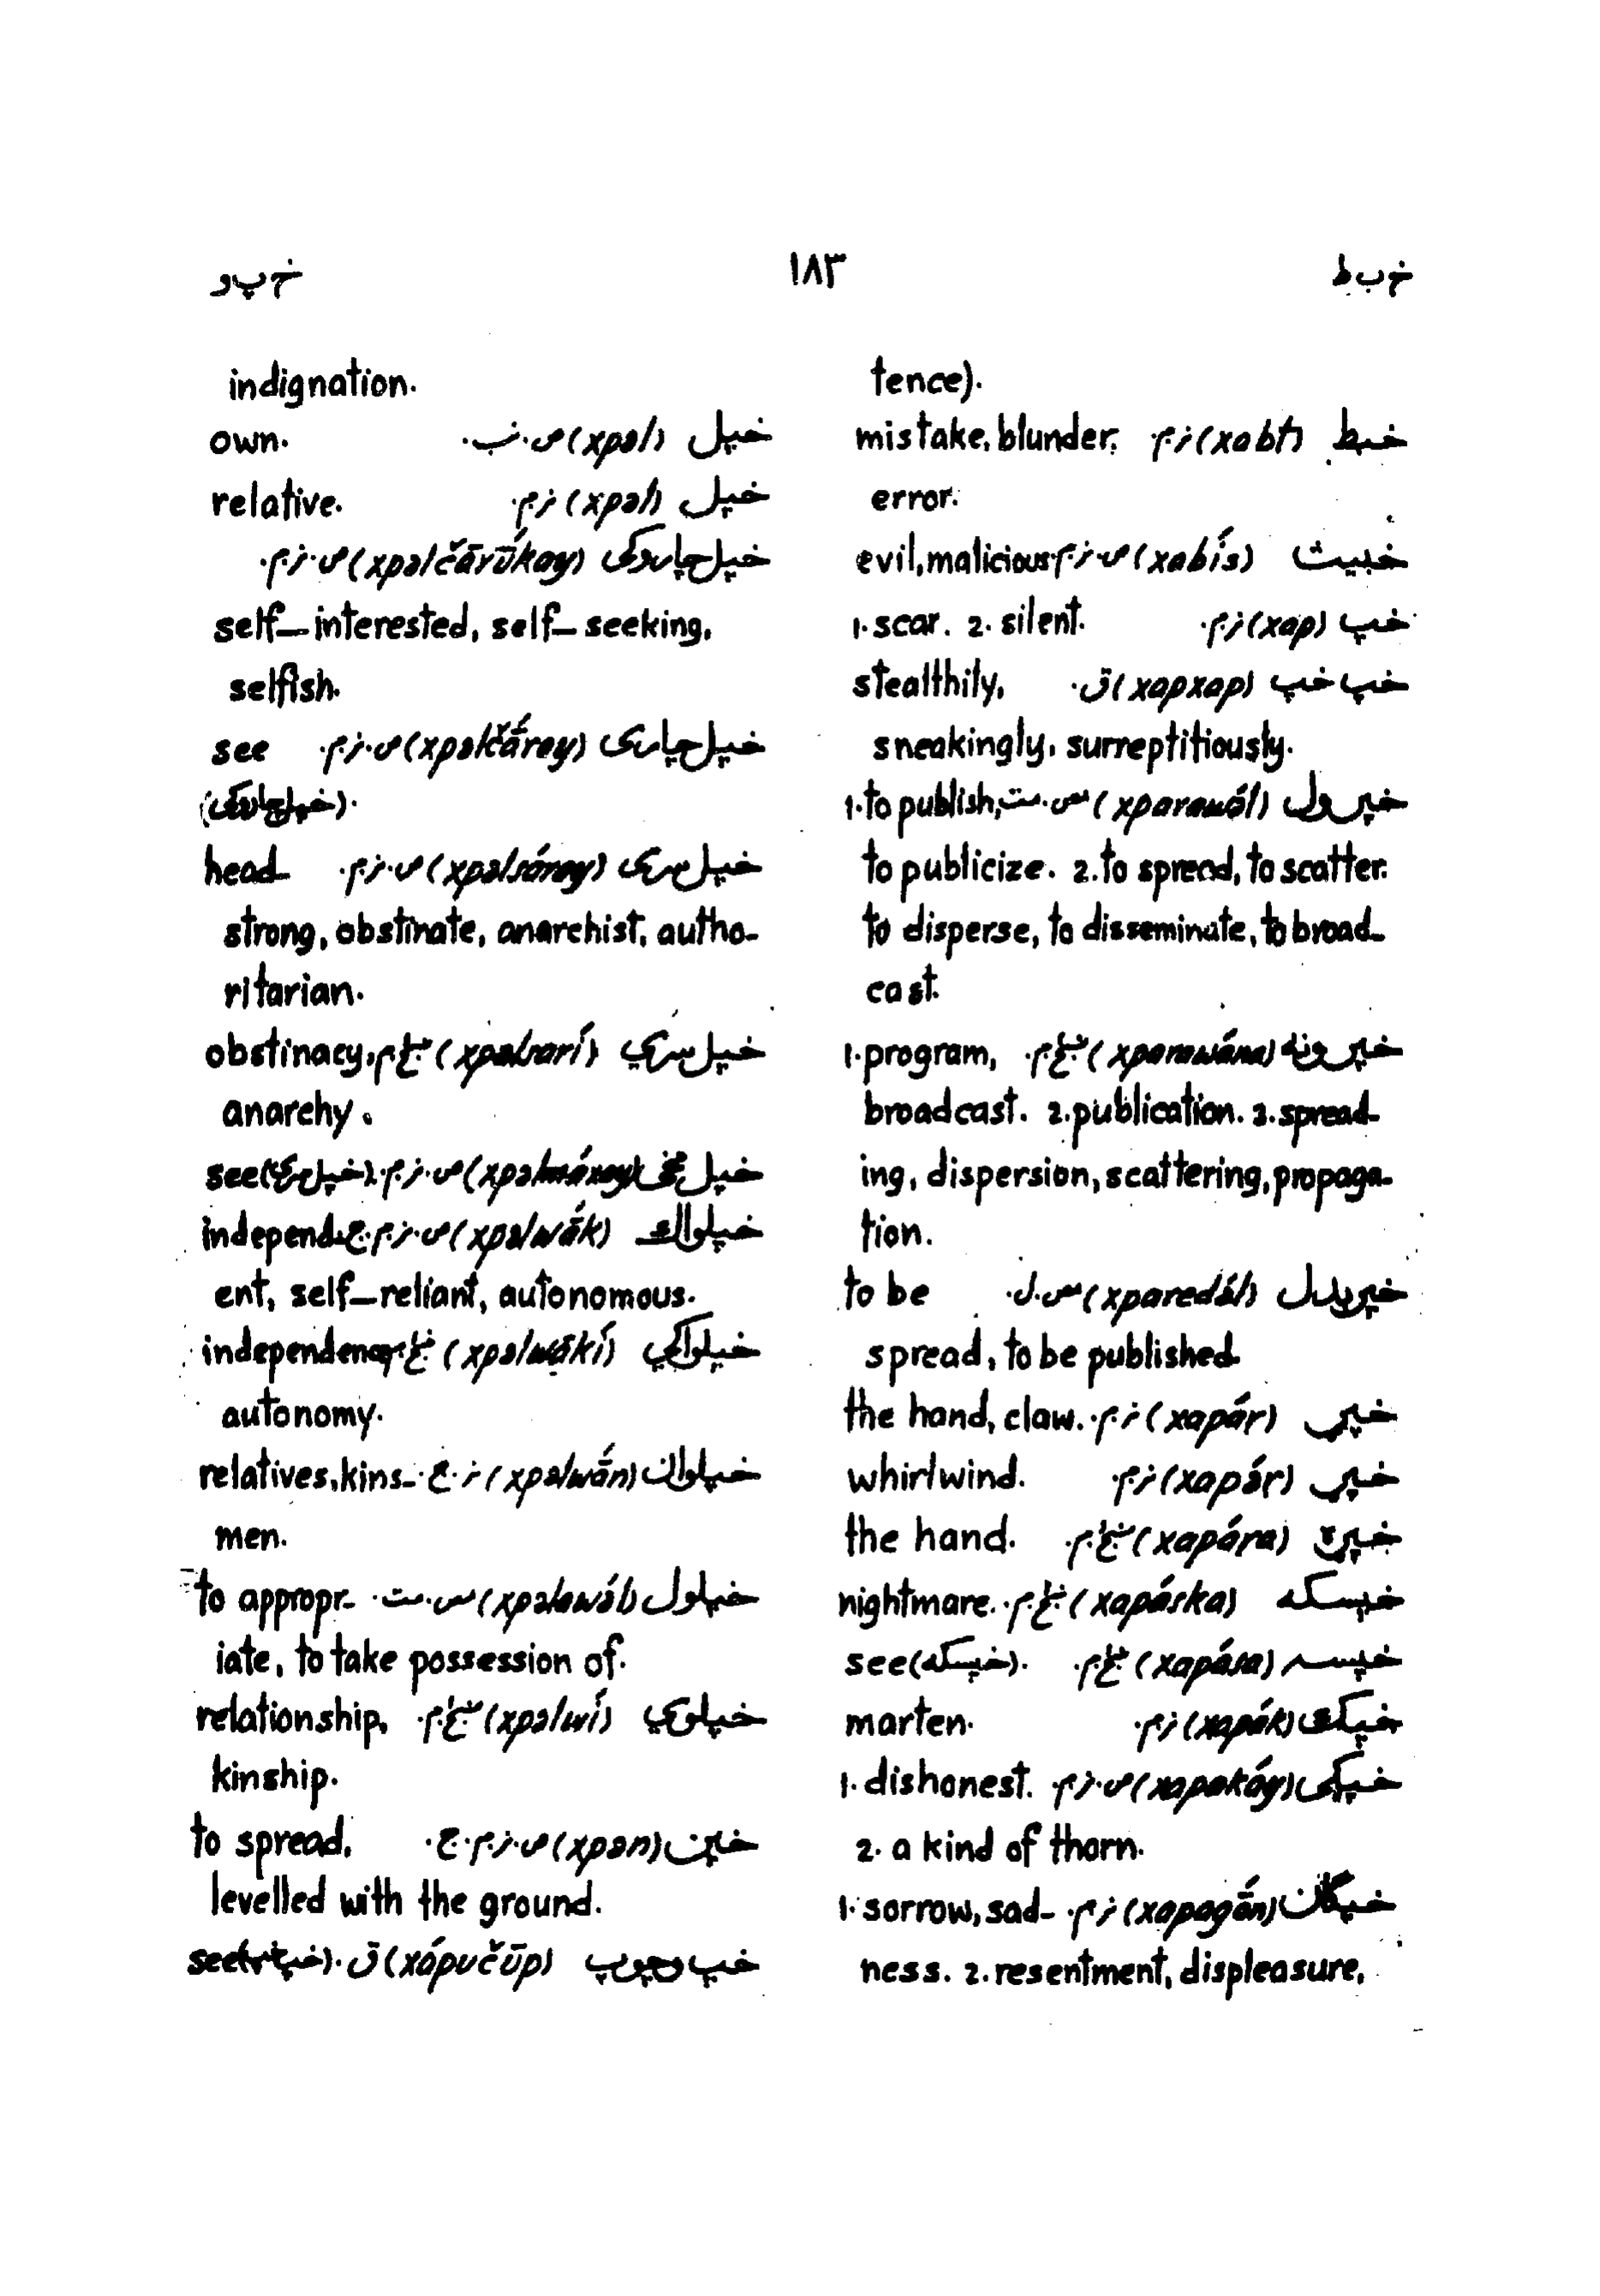 خ ب ط ۱۸۳ خ پ و
tence).
خبط (xabt) ن.م. mistake, blunder,
error.
خبيث (xabís) ص.ن.م. evil, malicious
خپ (xap) ن.م. 1. scar. 2. silent.
خپ خپ (xapxap) ق. stealthily,
sneakingly, surreptitiously.
خپرول (xparawə́l) س.مت. 1. to publish,
to publicize. 2. to spread, to scatter.
to disperse, to disseminate, to broad-
cast.
خپرونه (xparawə́na) ښځ.م. 1. program,
broadcast. 2. publication. 3. spread-
ing, dispersion, scattering, propaga-
tion.
خپريدل (xparedə́l) س.ل. to be
spread, to be published.
(xapár) ن.م. the hand, claw.
(xapə́r) ن.م. whirlwind.
(xapára) ښځ.م. the hand.
خپسکه (xapáska) ښځ.م. nightmare.
خپسه (xapása) ښځ.م. see (خپسکه).
خپک (xapák) ن.م. marten.
خپکی (xapakáy) ص.ن.م. 1. dishonest.
2. a kind of thorn.
خپگان (xapagā́n) ن.م. 1. sorrow, sad-
ness. 2. resentment, displeasure,
indignation.
خپل (xpəl) ص.نب. own.
خپل (xpəl) ن.م. relative.
خپل چاروکی (xpəlčārū́kay) ص.ن.م.
self-interested, self-seeking,
selfish.
خپل چاری (xpəlčā́ray) ص.ن.م. see
(خپل چاروکی).
خپل سری (xpəlsáray) ص.ن.م. head
strong, obstinate, anarchist, autho-
ritarian.
خپل سري (xpəlsarí) ښځ.م. obstinacy,
anarchy.
خپل مخی (xpəlmáxay) ص.ن.م. see (خپل سری).
خپلواک (xpəlwā́k) ص.ن.م.ج. independ-
ent, self-reliant, autonomous.
خپلواکي (xpəlwākí) ښځ.م. independence,
autonomy.
خپلوان (xpəlwā́n) ن.ج. relatives, kins-
men.
خپلول (xpəlawə́l) س.مت. to appropr-
iate, to take possession of.
خپلوي (xpəlwí) ښځ.م. relationship,
kinship.
خپن (xpən) ص.ن.م.ج. to spread,
levelled with the ground.
خپ وچوپ (xápučūp) ق. see